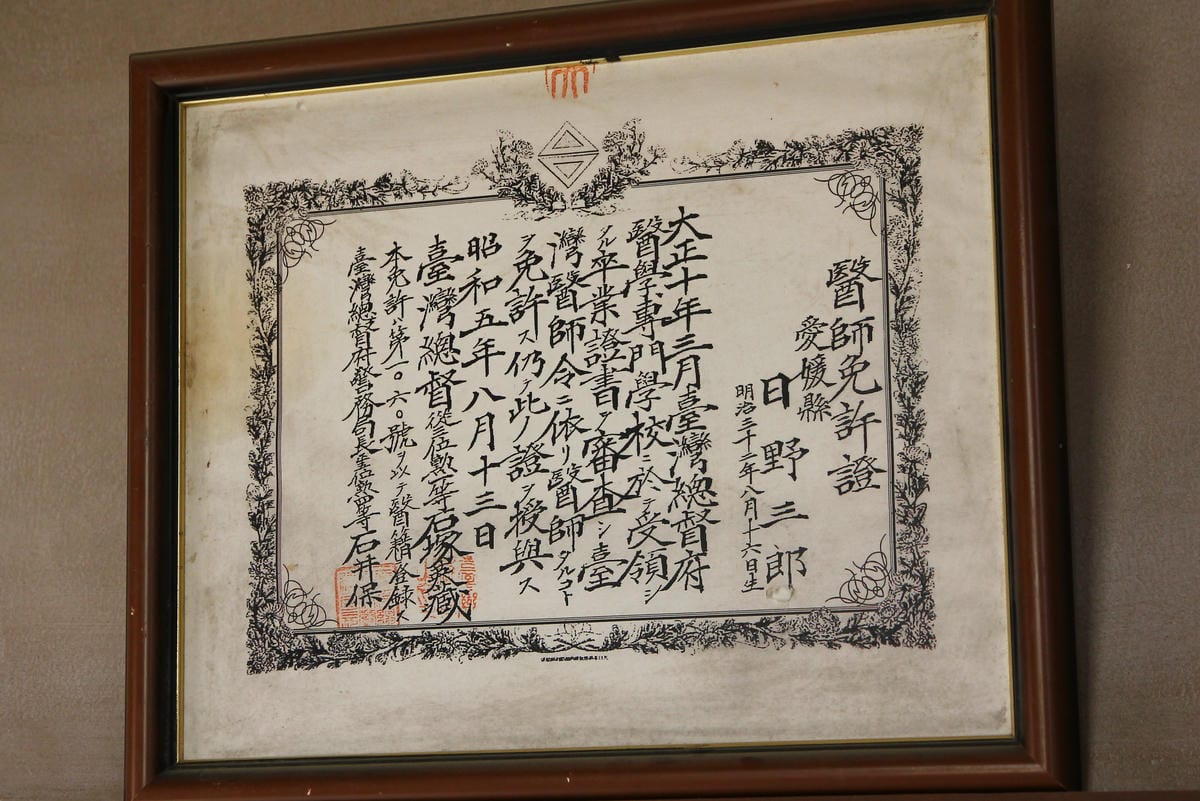 醫師免許證
愛媛縣
日野三郎
明治三十二年八月十六日生
大正十年三月臺灣總督府
醫學專門學校ニ於テ受領シ
タル卒業證書ヲ審査シ臺
灣醫師令ニ依リ醫師タルコト
ヲ免許ス仍テ此ノ證ヲ授與ス
昭和五年八月十三日
臺灣總督從三位勲一等石塚英藏
本免許ハ第一〇六〇號ヲ以テ醫籍ニ登錄ス
臺灣總督府警務局長正五位勲四等石井保